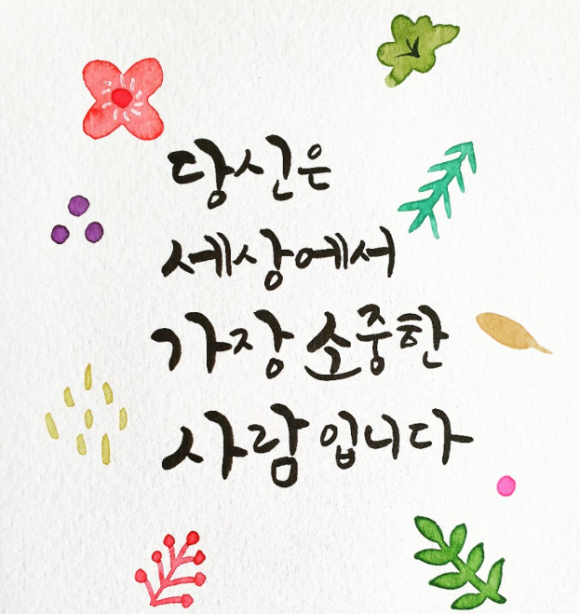 당신은
세상에서
가장 소중한
사람입니다